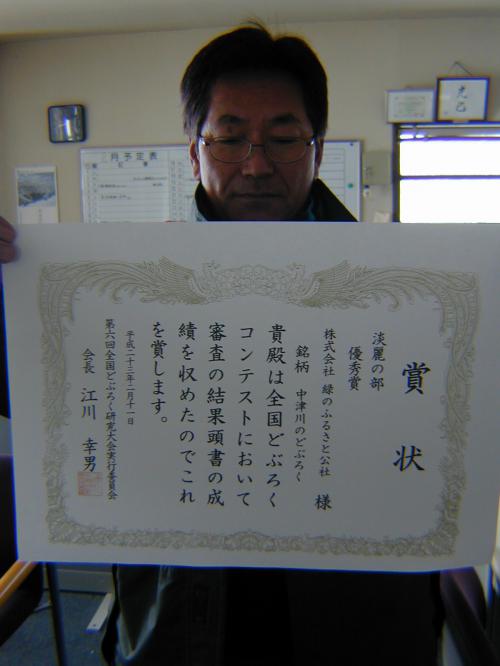 賞状
淡麗の部
優秀賞
株式会社 緑のふるさと公社 様
銘柄 中津川のどぶろく
貴殿は全国どぶろく
コンテストにおいて
審査の結果頭書の成
績を収めたのでこれ
を賞します。
平成二十三年二月十一日
第六回全国どぶろく研究大会実行委員会
会長 江川 幸男
月予定表